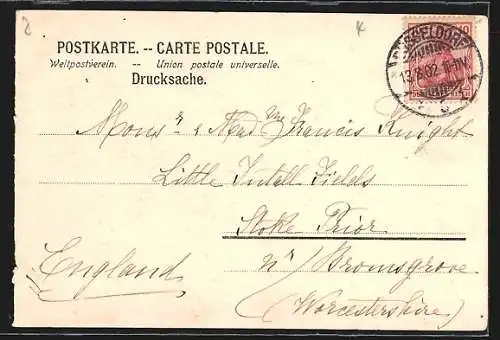 POSTKARTE. -- CARTE POSTALE.
Weltpostverein. -- Union postale universelle.
Drucksache.
DÜSSELDORF
13.8.02
Mons r & Mad me Francis Knight
Little Intall Fields
Stoke Prior
England
nr Bromsgrove
(Worcestershire)